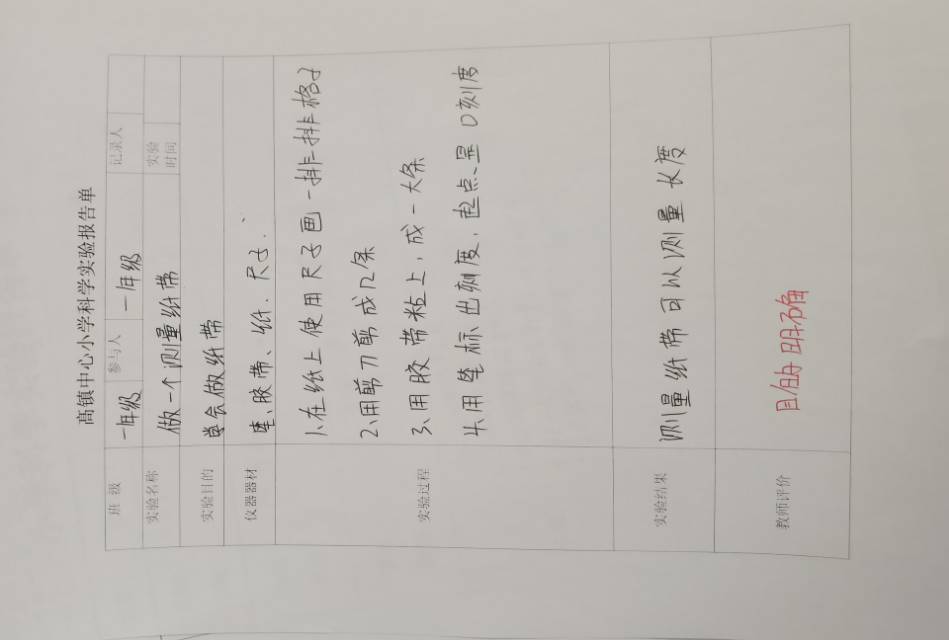 高镇中心小学科学实验报告单
班 级 一年级 参与人 一年级 记录人
实验名称 做一个测量纸带 实验时间
实验目的 学会做纸带
仪器器材 笔、胶带、纸、尺子.
实验过程
1、在纸上使用尺子画一排排格子
2、用剪刀剪成几条
3、用胶带粘上,成一大条
4、用笔标出刻度,起点是0刻度
实验结果 测量纸带可以测量长度
教师评价 目的明确